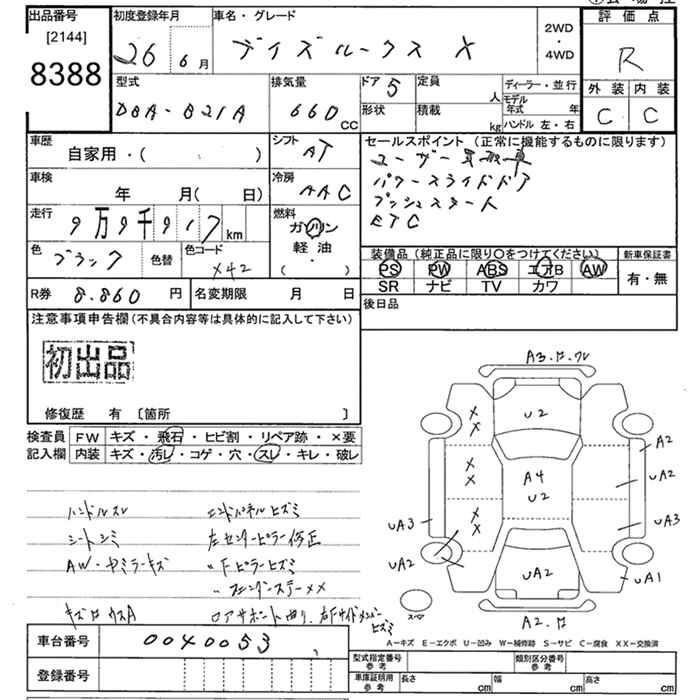 出品番号
[2144]
8388
初度登録年月
26 6月
車名・グレード
デイズルークス X
2WD
・
4WD
評価点
R
外装 内装
C C
型式
DBA-B21A
排気量
660 CC
ドア 5
形状
定員 人
積載 kg
ディーラー・並行
モデル年式 年
ハンドル 左・右
車歴
自家用・( )
シフト
AT
車検
年 月( 日)
冷房
AAC
走行
9万9千917 km
燃料
ガソリン
軽油
・
( )
色
ブラック
色替
色コード
X42
R券 8.860 円
名変期限 月 日
セールスポイント (正常に機能するものに限ります)
ユーザー買取車
パワースライドドア
プッシュスタート
ETC
装備品 (純正品に限り〇をつけてください)
PS PW ABS エアB AW
SR ナビ TV カワ
新車保証書
有・無
後日品
注意事項申告欄 (不具合内容等は具体的に記入して下さい)
初出品
修復歴 有 〔箇所 〕
検査員記入欄
FW キズ・飛石・ヒビ割・リペア跡・×要
内装 キズ・汚レ・コゲ・穴・スレ・キレ・破レ
ハンドルスレ
シートシミ
AW・ヤミラーキズ
エンドパネルヒズミ
左センターピラー修正
〃Fピラーヒズミ
車台番号 0040053
登録番号
A3.
U2
A4
U2
UA2
A2
UA2
UA3
UA1
UA3
UA2
A2.
X
X
X
X
X
X
A-キズ E-エクボ U-凹み W-補修跡 S-サビ C-腐食 XX-交換済
型式指定番号 参考
類別区分番号 参考
車庫証明用 参考
長さ cm
幅 cm
高さ cm